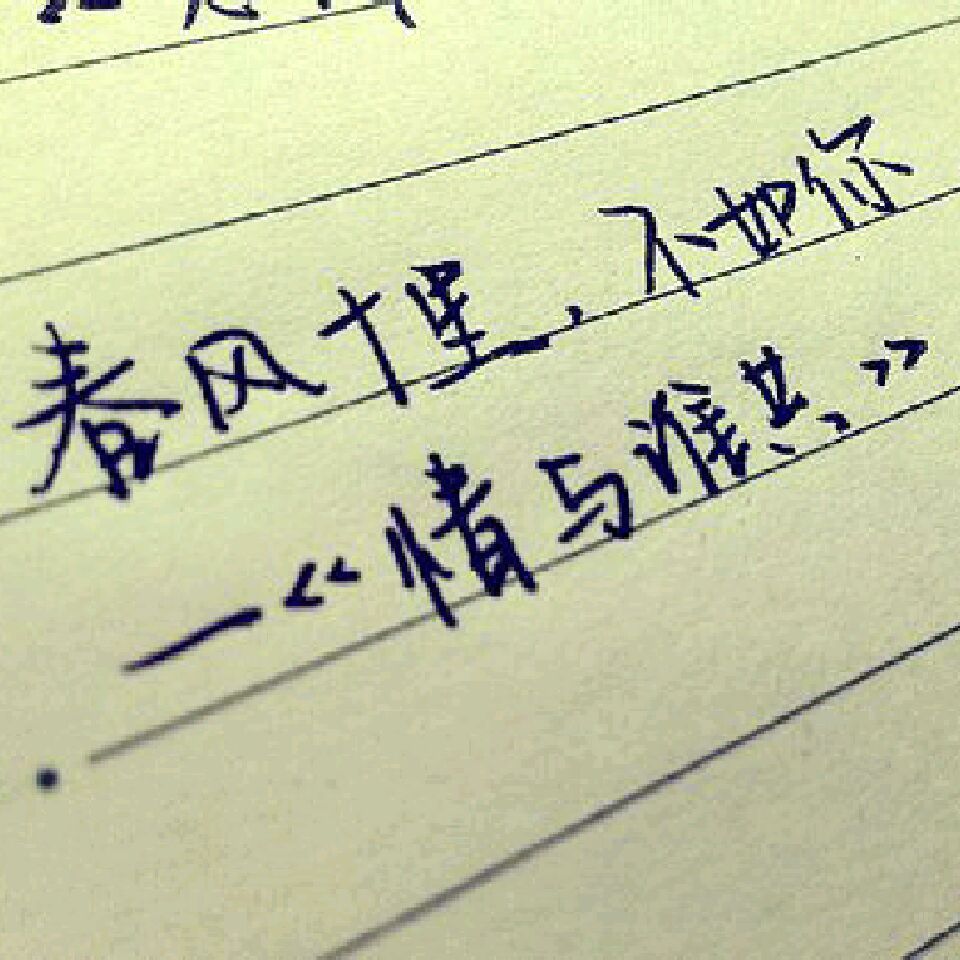 春风十里,不如你
—《情与谁共》